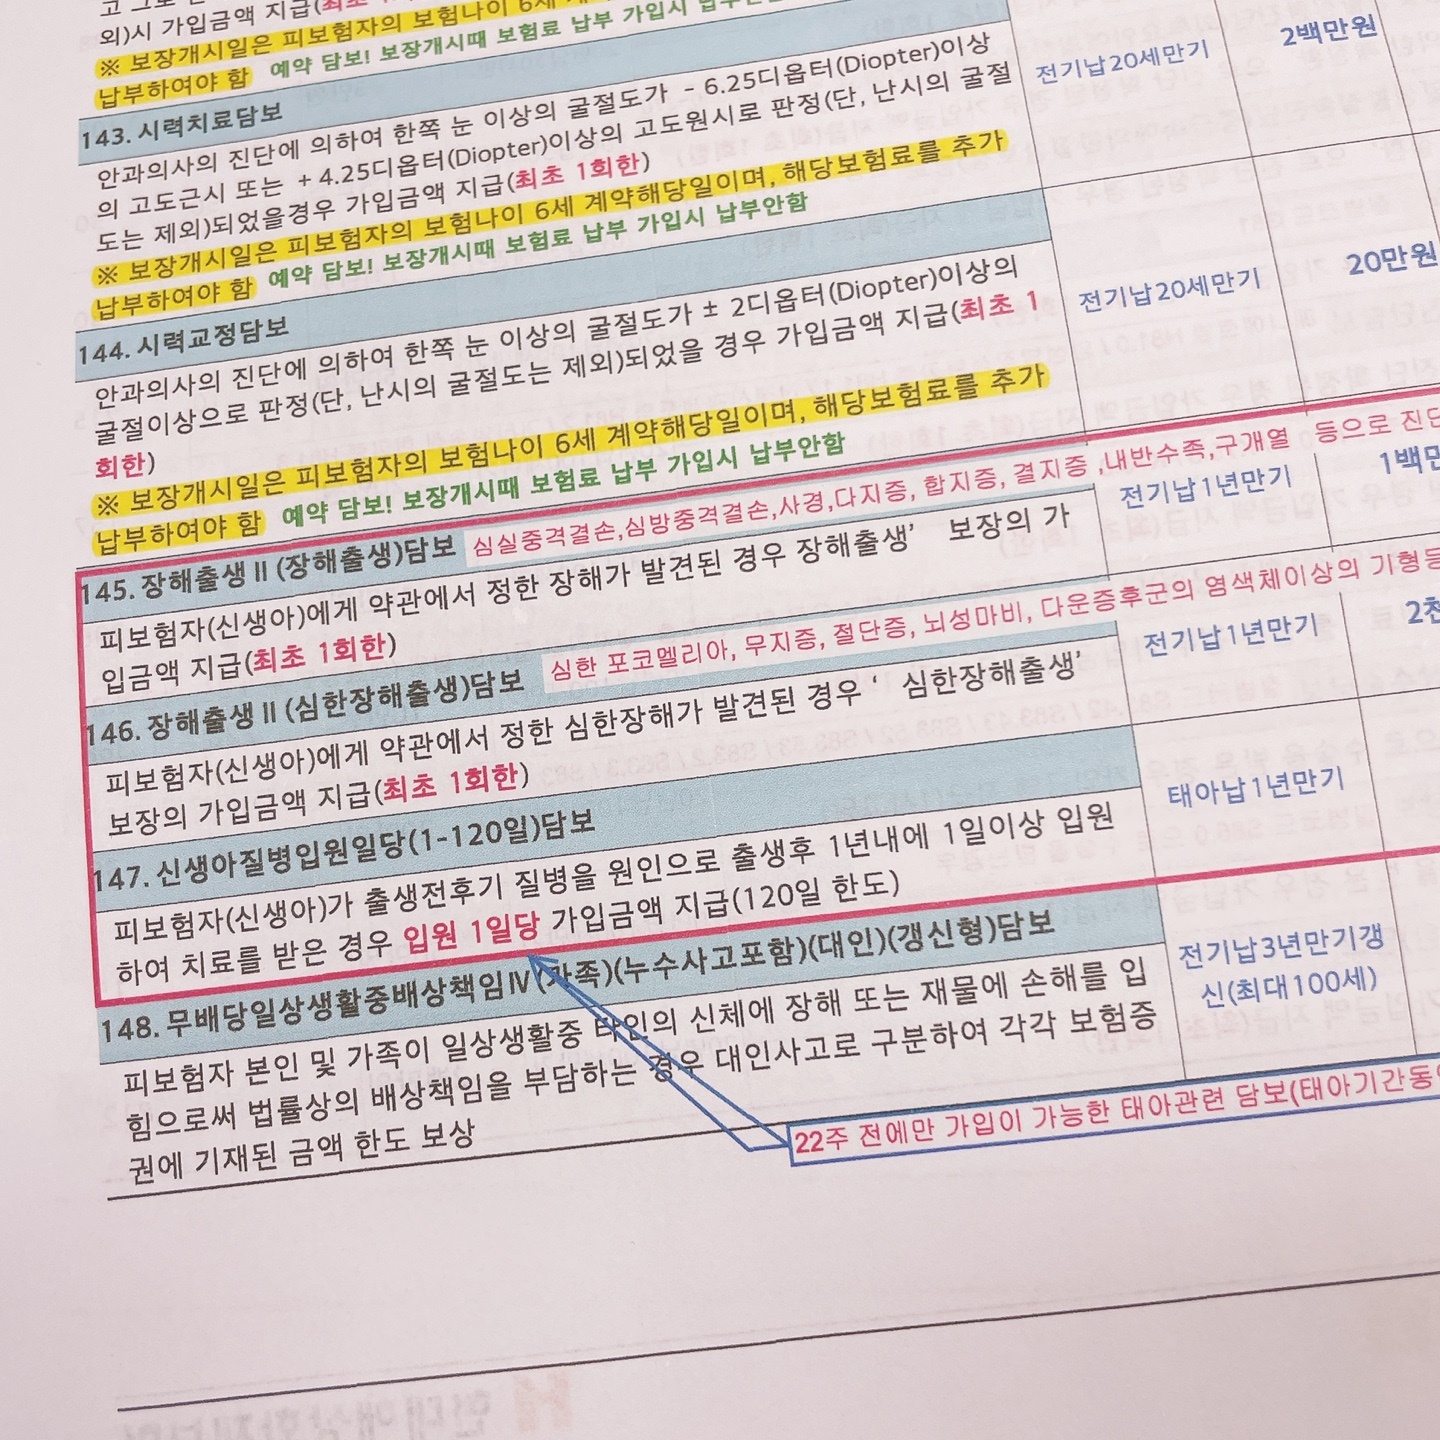 외)시 가입금액 지급(최초
※ 보장개시일은 피보험자의 보험나이 6세
납부하여야 함 예약 담보! 보장개시때 보험료 납부 가입시
143. 시력치료담보
안과의사의 진단에 의하여 한쪽 눈 이상의 굴절도가 - 6.25디옵터(Diopter)이상
의 고도근시 또는 + 4.25디옵터(Diopter)이상의 고도원시로 판정(단, 난시의 굴절
도는 제외)되었을경우 가입금액 지급(최초 1회한)
※ 보장개시일은 피보험자의 보험나이 6세 계약해당일이며, 해당보험료를 추가
납부하여야 함 예약 담보! 보장개시때 보험료 납부 가입시 납부안함
전기납20세만기
2백만원
144. 시력교정담보
안과의사의 진단에 의하여 한쪽 눈 이상의 굴절도가 ± 2디옵터(Diopter)이상의
굴절이상으로 판정(단, 난시의 굴절도는 제외)되었을 경우 가입금액 지급(최초 1
회한)
※ 보장개시일은 피보험자의 보험나이 6세 계약해당일이며, 해당보험료를 추가
납부하여야 함 예약 담보! 보장개시때 보험료 납부 가입시 납부안함
전기납20세만기
20만원
145. 장해출생Ⅱ(장해출생)담보 심실중격결손,심방중격결손,사경,다지증, 합지증, 결지증 ,내반수족,구개열 등으로 진단
피보험자(신생아)에게 약관에서 정한 장해가 발견된 경우 장해출생’ 보장의 가
입금액 지급(최초 1회한)
전기납1년만기
1백만
146. 장해출생Ⅱ(심한장해출생)담보 심한 포코멜리아, 무지증, 절단증, 뇌성마비, 다운증후군의 염색체이상의 기형등
피보험자(신생아)에게 약관에서 정한 심한장해가 발견된 경우 ‘ 심한장해출생’
보장의 가입금액 지급(최초 1회한)
전기납1년만기
2천
147. 신생아질병입원일당(1-120일)담보
피보험자(신생아)가 출생전후기 질병을 원인으로 출생후 1년내에 1일이상 입원
하여 치료를 받은 경우 입원 1일당 가입금액 지급(120일 한도)
태아납1년만기
148. 무배당일상생활중배상책임Ⅳ(가족)(누수사고포함)(대인)(갱신형)담보
피보험자 본인 및 가족이 일상생활중 타인의 신체에 장해 또는 재물에 손해를 입
힘으로써 법률상의 배상책임을 부담하는 경우 대인사고로 구분하여 각각 보험증
권에 기재된 금액 한도 보상
전기납3년만기갱
신(최대100세)
22주 전에만 가입이 가능한 태아관련 담보(태아기간동안